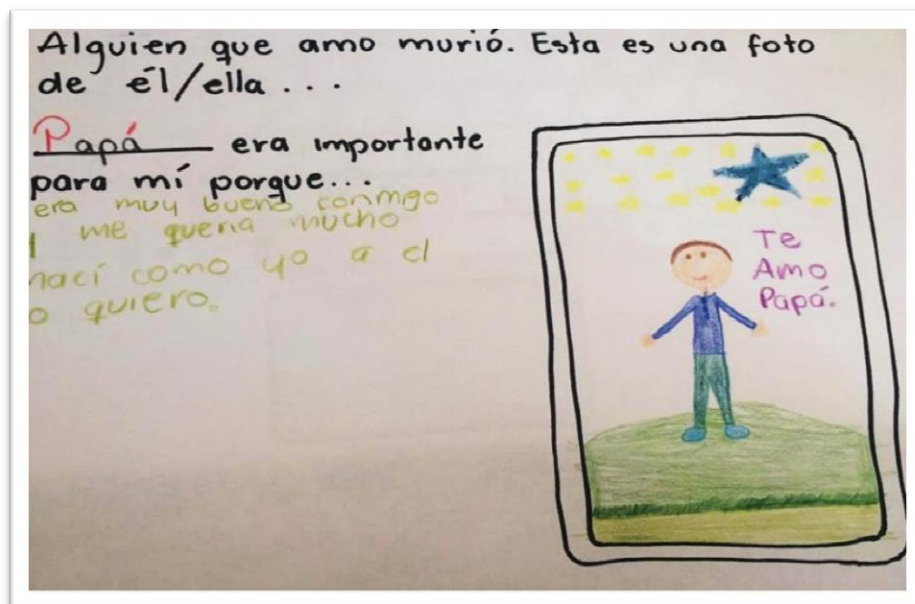 Alguien que amo murió. Esta es una foto
de él/ella ...
Papá era importante
para mí porque...
era muy bueno conmigo
me queria mucho
naci como yo a el
o quiero.
Te
Amo
Papá.